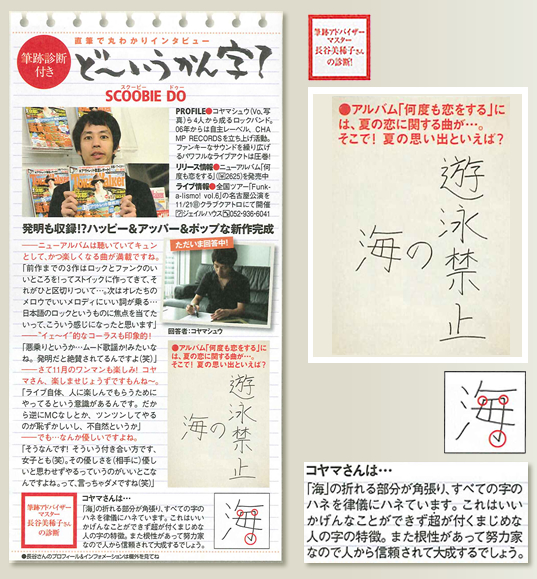 筆跡診断
付き
直筆で丸わかりインタビュー
ど〜いうかん字?
スクービー ドゥー
SCOOBIE DO
PROFILE●コヤマシュウ(Vo,写
真)ら4人から成るロックバンド。
06年からは自主レーベル、CHA
MP RECORDSを立ち上げ活動。
ファンキーなサウンドを繰り広げ
るパワフルなライブアクトは圧巻!
リリース情報●ニューアルバム「何
度も恋をする」(¥2625)を発売中
ライブ情報●全国ツアー「Funk-
a-lismo! vol.6」の名古屋公演を
11/21㊐クラブクアトロにて開催
ジェイルハウス 052-936-6041
発明も収録!?ハッピー&アッパー&ポップな新作完成
――ニューアルバムは聴いていてキュン
として、かつ楽しくなる曲が満載ですね。
「前作までの3作はロックとファンクのい
いところを!ってストイックに作ってきて、そ
れがひと区切りついて…。次はオレたちの
メロウでいいメロディにいい詞が乗る…
日本語のロックというものに焦点を当てた
いって、こういう感じになったと思います」
――"イェ〜イ"的なコーラスも印象的!
「悪乗りというか…ムード歌謡か!みたいな
ね。発明だと絶賛されてるんですよ(笑)」
――さて11月のワンマンも楽しみ! コヤ
マさん、楽しませじょうずですもんね〜。
「ライブ自体、人に楽しんでもらうために
やってるという意識があるんです。だか
ら逆にMCなしとか、ツンツンしてやる
のが恥ずかしいし、不自然というか」
――でも…なんか優しいですよね。
「そうなんです! そういう付き合い方です、
女子とも(笑)。その優しさを(相手に)優し
いと思わせずやるっていうのがいいとこな
んですよね。って、言っちゃダメですね(笑)」
ただいま回答中!
回答者:コヤマシュウ
●アルバム「何度も恋をする」に
は、夏の恋に関する曲が…。
そこで! 夏の思い出といえば?
海の
遊泳禁止
筆跡アドバイザー
マスター
長谷川美稀子さん
の診断
コヤマさんは…
「海」の折れる部分が角張り、すべての字の
ハネを律儀にハネています。これはいい
かげんなことができず超が付くまじめな
人の字の特徴。また根性があって努力家
なので人から信頼されて大成するでしょう。
海
●長谷川さんのプロフィール&インフォメーションは欄外を見てね
筆跡アドバイザー
マスター
長谷川美稀子さん
の診断!
●アルバム「何度も恋をする」に
は、夏の恋に関する曲が…。
そこで! 夏の思い出といえば?
海の
遊泳禁止
海
コヤマさんは…
「海」の折れる部分が角張り、すべての字の
ハネを律儀にハネています。これはいい
かげんなことができず超が付くまじめな
人の字の特徴。また根性があって努力家
なので人から信頼されて大成するでしょう。